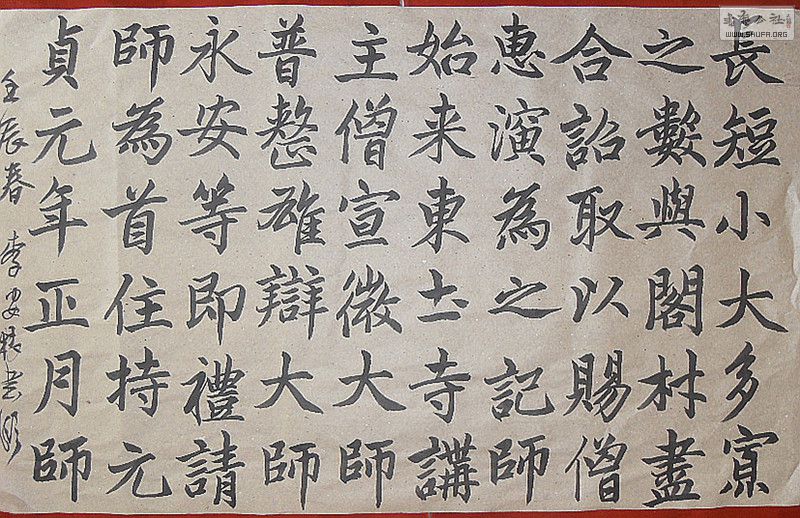 長短小大多寡
之數與閣材盡
合詔取以賜僧
惠演為之記師
始来東土寺講
主僧宣微大師
普整雄辯大師
永安等即禮請
師為首住持元
貞元年正月師
壬辰春 李
书法公社
WWW.SHUFA.ORG